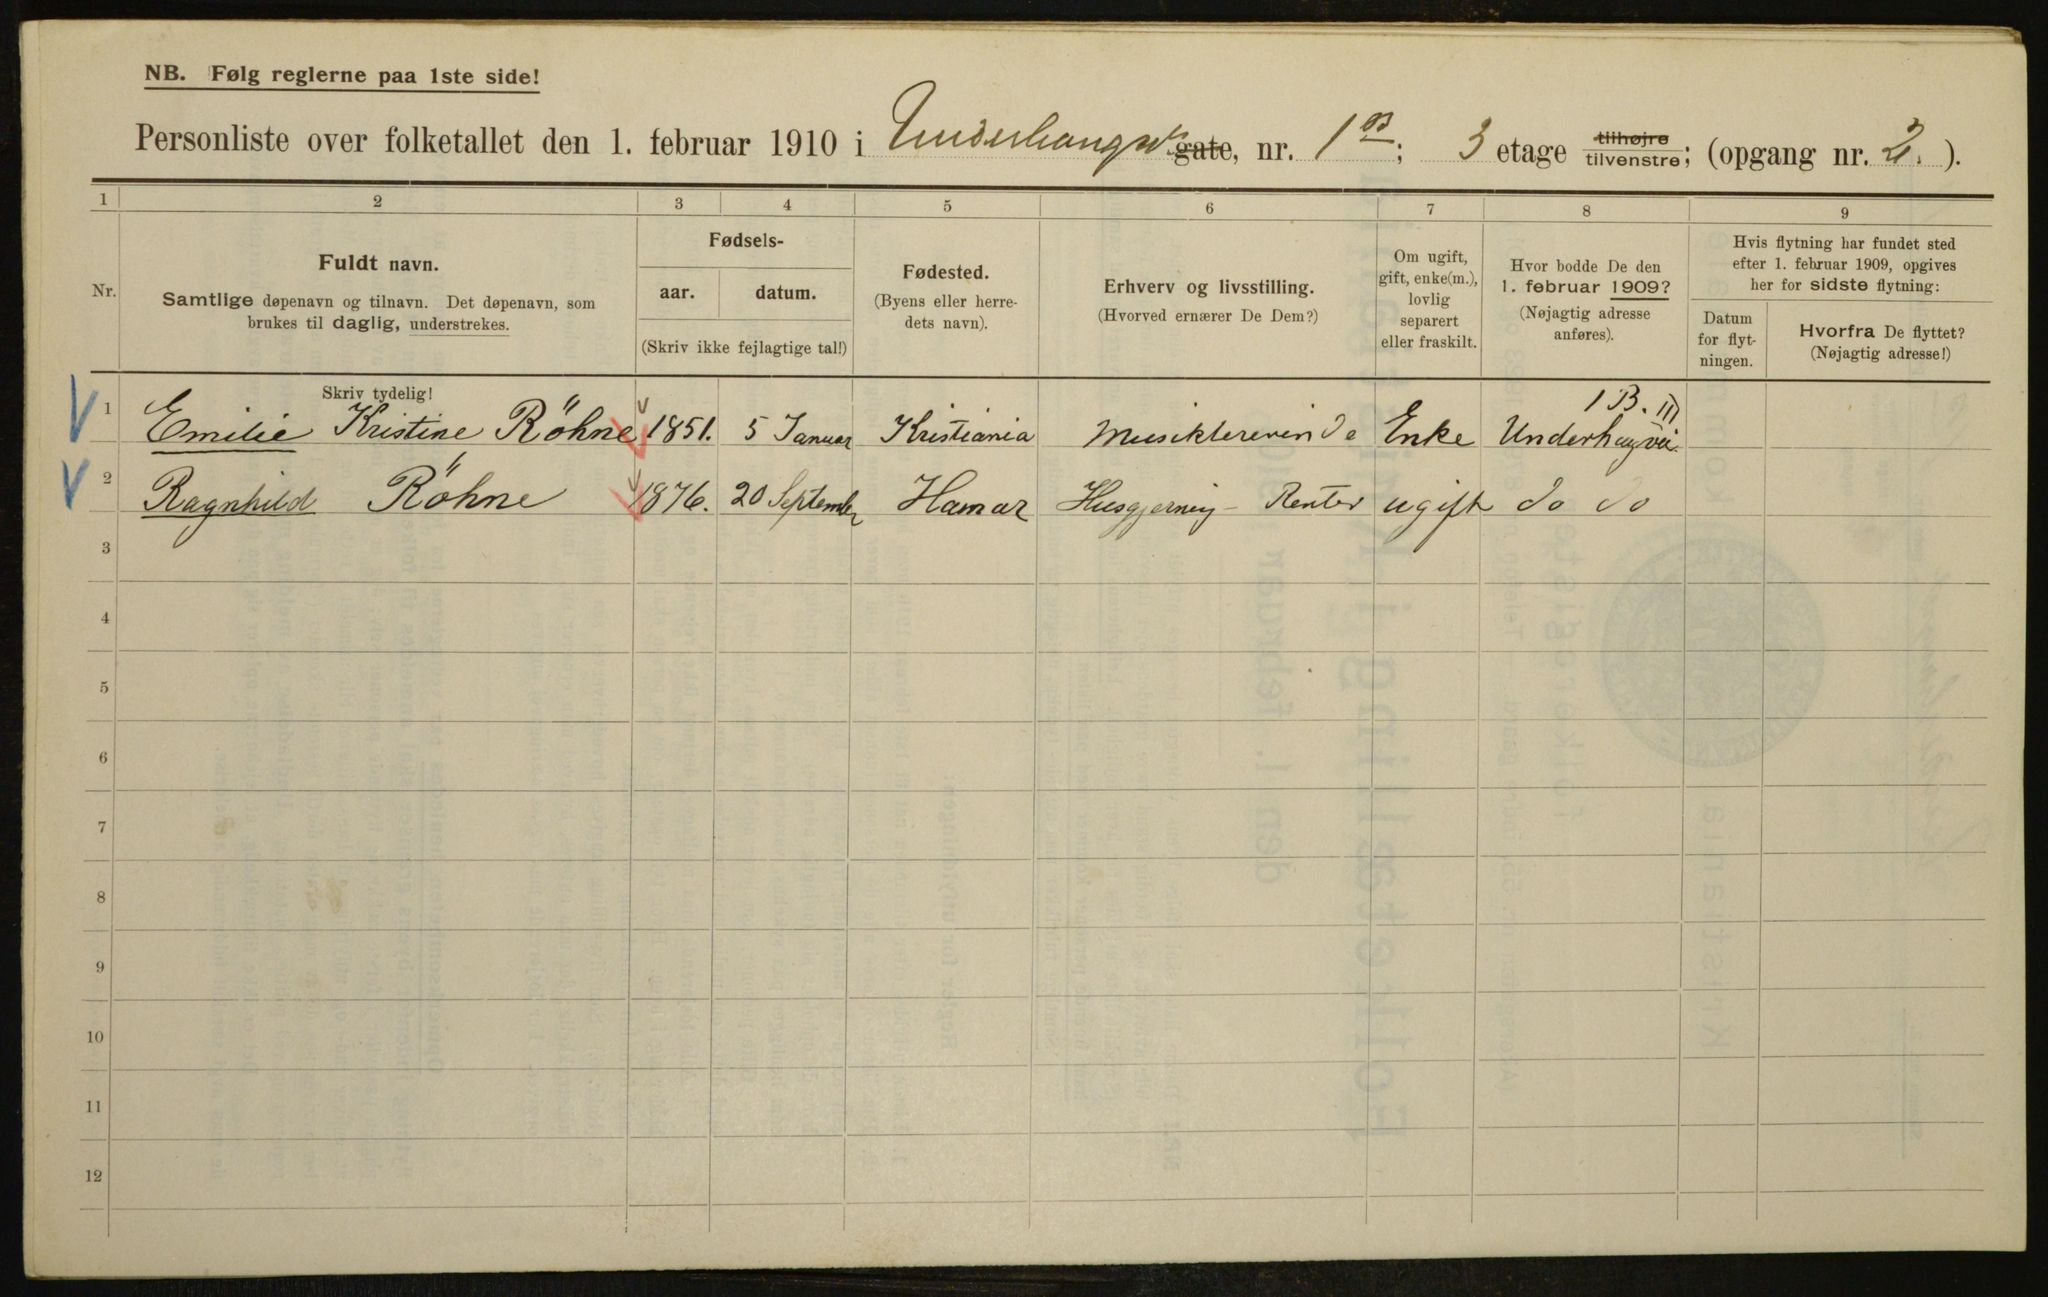 NB. Følg reglerne paa 1ste side!
Personliste over folketallet den 1. februar 1910 i Underhaugsv. gate, nr. 1B; 3 etage tilhøjre tilvenstre; (opgang nr. 2.).
1 2 3 4 5 6 7 8 9
Nr.
Fuldt navn.
Samtlige døpenavn og tilnavn. Det døpenavn, som
brukes til daglig, understrekes.
Skriv tydelig!
Fødsels-
aar. datum.
(Skriv ikke fejlagtige tal!)
Fødested.
(Byens eller herre-
dets navn).
Erhverv og livsstilling.
(Hvorved ernærer De Dem?)
Om ugift,
gift, enke(m.),
lovlig
separert
eller fraskilt.
Hvor bodde De den
1. februar 1909?
(Nøjagtig adresse
anføres).
Hvis flytning har fundet sted
efter 1. februar 1909, opgives
her for sidste flytning:
Datum
for flyt-
ningen.
Hvorfra De flyttet?
(Nøjagtig adresse!)
1 B. III
1 Emilie Kristine Röhne 1851. 5 Januar Kristiania Musiklererinde Enke Underhaugsvei
2 Ragnhild Röhne 1876. 20 September Hamar Husgjerning - Renter ugift do do
3
4
5
6
7
8
9
10
11
12